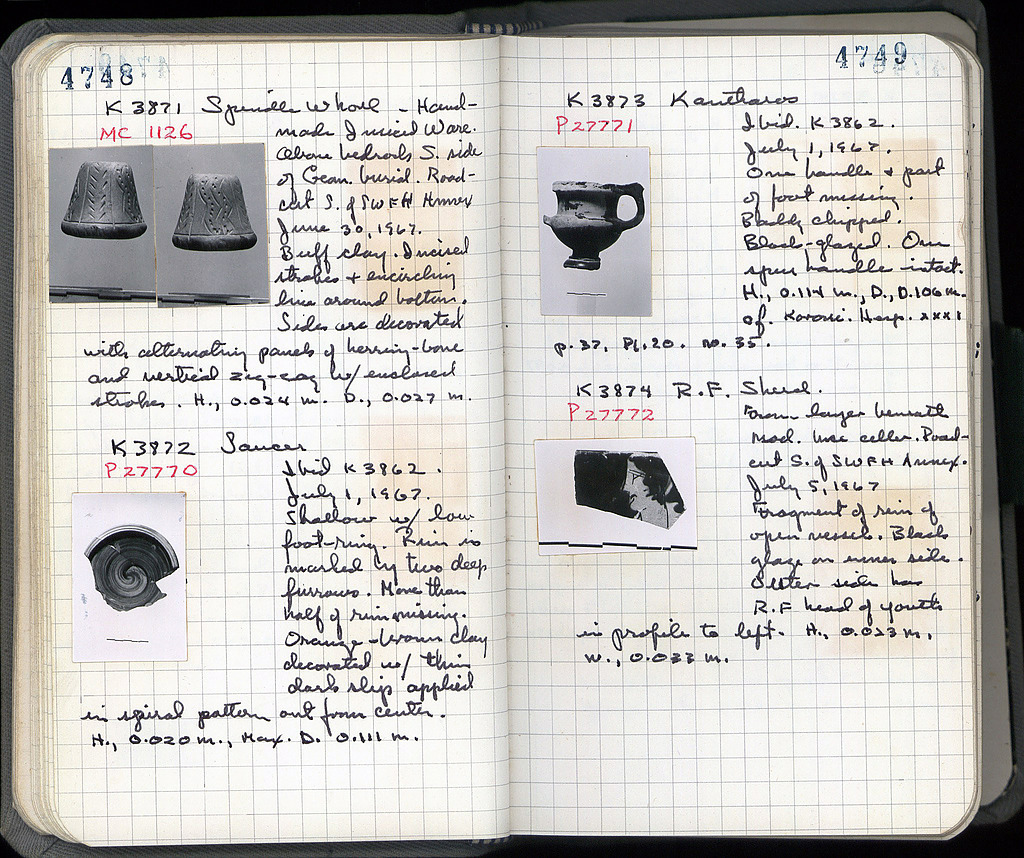 4748
K 3871 Spindle Whorl - Hand-
MC 1126
made Incised Ware.
Above bedrock S. side
of Geom. burial. Road-
cut S. of SWFH Annex
June 30, 1967.
Buff clay. Incised
strokes + encircling
line around bottom.
Sides are decorated
with alternating panels of herring-bone
and vertical zig-zag w/ enclosed
strokes. H., 0.024 m. D., 0.027 m.
K 3872 Saucer
P 27770
Ibid K 3862.
July 1, 1967.
Shallow w/ low
foot-ring. Rim is
marked by two deep
furrows. More than
half of rim missing.
Orange-brown clay
decorated w/ thin
dark slip applied
in spiral pattern out from center.
H., 0.020 m., Max. D. 0.111 m.
4749
K 3873 Kantharos
P 27771
Ibid. K 3862.
July 1, 1967.
One handle + part
of foot missing.
Badly chipped.
Black-glazed. One
spur handle intact.
H., 0.114 m., D., 0.106 m.
cf. Hesp. XXXI
p. 37, Pl. 20. no. 35.
K 3874 R.F. Sherd.
P 27772
From layer beneath
mod. house cellar. Road-
cut S. of SWFH Annex.
July 5, 1967
Fragment of rim of
open vessel. Black
glaze on inner side.
Outer side has
R.F head of youth
in profile to left. H., 0.023 m,
W., 0.033 m.